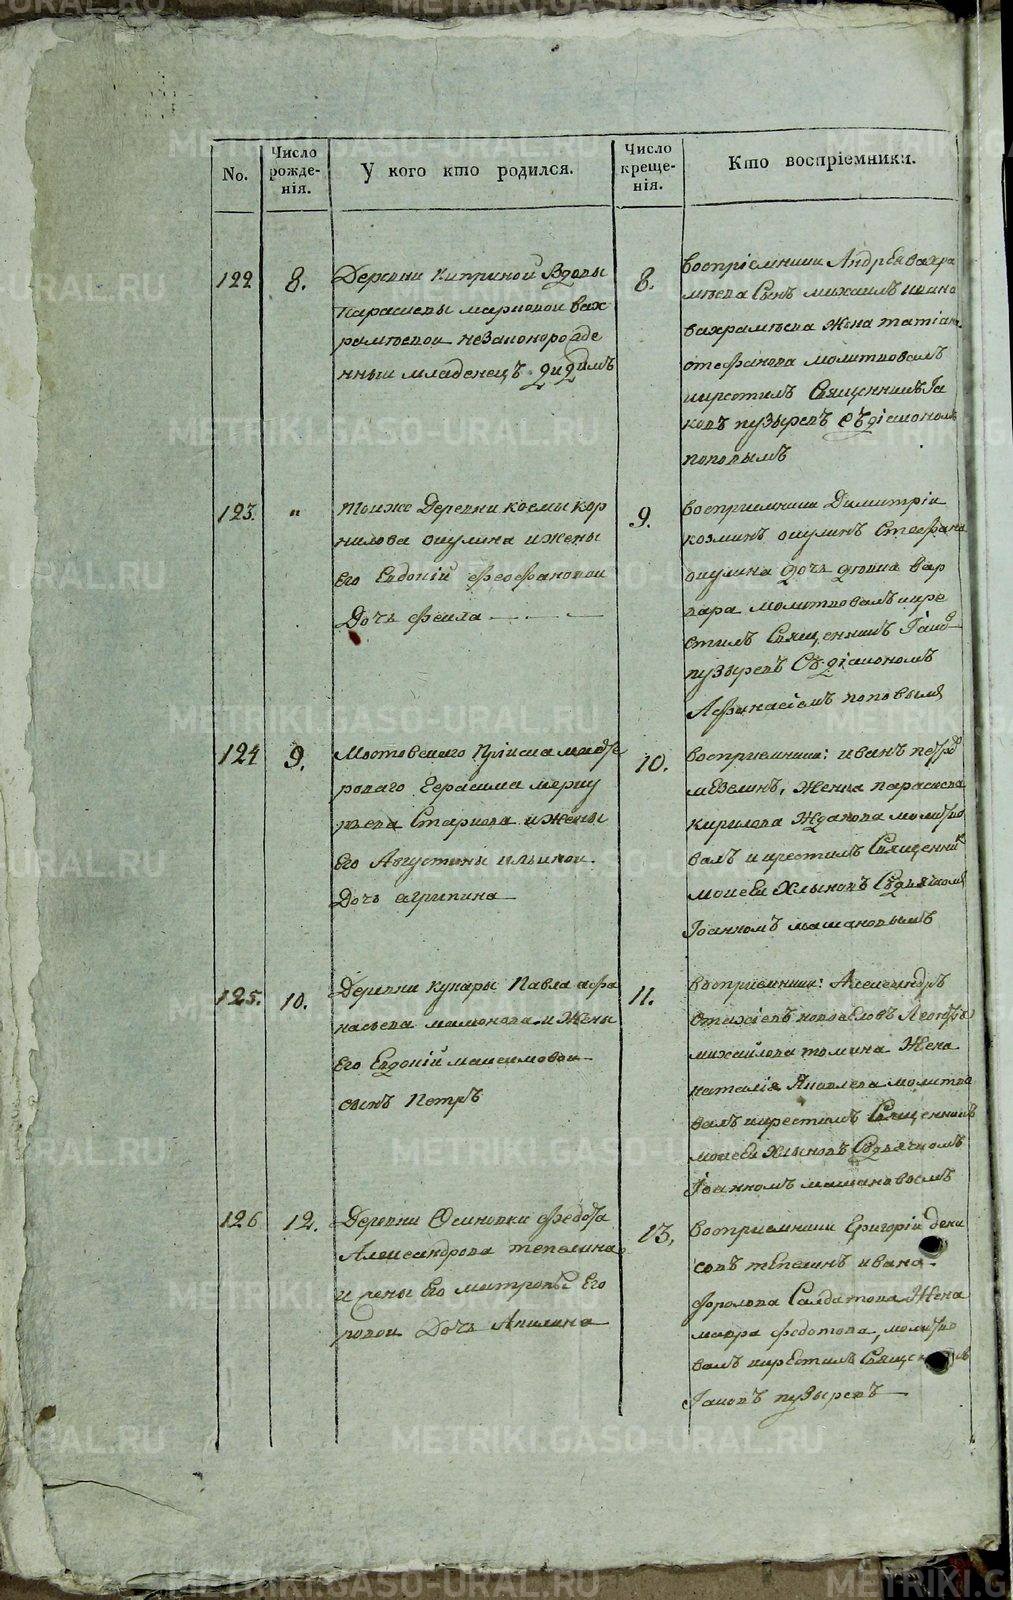 No.
Число рожде-нія.
У кого кто родился.
Число креще-нія.
Кто воспріемники.
122
8.
Деревни Киприной Вдовы
Парасковьи Марковой вах
рамѣевой незаконорожде
нный младенецъ Дидимъ
8.
воспріемники Андрея вахра
мѣева Сынъ михаилъ ивана
вахрамѣева жена татіана
стефанова молитвовалъ
икрестилъ Священникъ Іа
ковъ пузыревъ Съ діакономъ
поповымъ
123.
"
тоиже Деревни козмы кор
нилова окулина ижены
Его Евдокіи феофановои
Дочь фекла
9.
воспріемники Димитріи
козминъ окулинъ Стефана
окулина дочь девка вар
вара молитвовалъ икре
стилъ Священникъ Іаков
пузыревъ Съ діакономъ
Афанасіемъ поповымъ
124
9.
Мостовскаго Пріиска масте
роваго Герасима мерку
рьева Старкова ижены
Его Августины ильиной
Дочь агрипина
10.
воспріемники: иванъ петров
мѣзелинъ, женка парасковья
кирилова Жданова молитво
валъ и крестилъ Священник
моисеи Хлыновъ Съ дьячкомъ
Іоанномъ машановымъ
125.
10.
Деревни кунары Павла афа
насьева мамонова и Жены
Его Евдокіи максимовой
сынъ Петръ
11.
воспріемники: Александръ
новоселовъ
михаилова томина Жена
наталія Яковлева молитво
валъ икрестилъ Священникъ
моисеи Хлыновъ Съ дьячкомъ
Іоанномъ машановымъ
126
12.
Деревни Осиновки Федота
Александрова тепелина
и жены Его митродоры Его
ровои Дочь Акилина
13,
воспріемники Григоріи дени
совъ тепелинъ ивана
форолова Салдатова Жена
мавра федотова, молитво
валъ икрестилъ
Іаковъ пузыревъ
METRIKI.GASO-URAL.RU